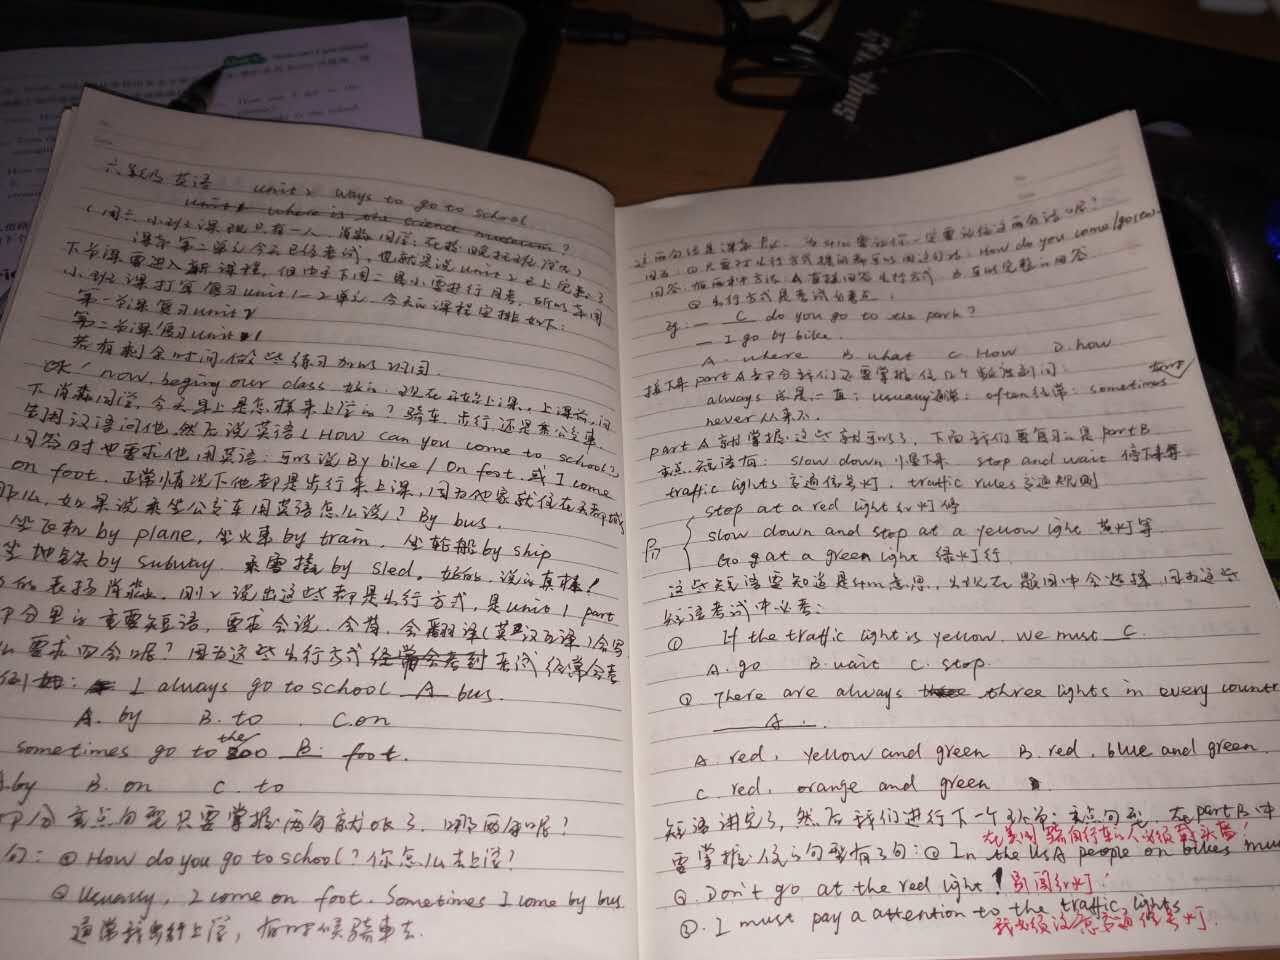 六年级 英语 unit 2 ways to go to school
unit 1 where is the science museum?
(周六小班课现只有一人,肖淼同学:在校
课本第二单元今天已经考试,也就是说unit 2 已上完了
下节课要进入新课程,但由于下周二是小要进行月考,所以本周
小班课打算复习unit 1-2单元,今天的课程安排如下:
第一节课复习unit 2
第二节课复习unit 1
若有剩余时间,做些练习加以巩固.
OK! now, beging our class 好的,现在开始上课,上课前,问
下肖淼同学,今天早上是怎样来上学的?骑车、步行、还是乘公交车.
先用汉语问他,然后说英语(How can you come to school?)
回答时也要求他用英语:可以说By bike / On foot, 或 I come
on foot. 正常情况下他都是步行来上课,因为他家就住在
那么,如果说乘坐公交车用英语怎么说?By bus.
坐飞机by plane, 坐火车by train, 坐轮船by ship
坐地铁by subway, 乘雪橇by sled。好的,说的真棒!
表扬肖淼,刚才说出这些都是出行方式,是unit 1 part
部分里的重要短语,要求会说、会背、会翻译(英汉互译)会写
要求四会呢?因为这些出行方式 经常会考到 考试经常会考
例如: I always go to school A bus.
A. by B. to C. on
sometimes go to the zoo B foot.
A. by B. on C. to
部分重点句型只要掌握两句就OK了,哪两句呢?
句:① How do you go to school? 你怎么去上学?
② Usually, I come on foot. Sometimes I come by bus.
通常我步行上学,有时候骑车去.
这两句话是课本P 为什么要让你一定要记住这两句话呢?
因为:①只要对出行方式提问都可以用这句话:How do you come/go to
回答,有两种方法,A直接回答出行方式 B可以完整的回答
②出行方式是考试的重点:
eg: — C do you go to the park?
— I go by bike.
A. where B. what C. How D. how
接下来 part A部分我们还要掌握住几个频率副词:
always 总是,一直;usually通常;often经常;sometimes 有时
never从来不.
part A就掌握这些就可以了,下面我们要复习的是part B
重点短语有:slow down 慢下来 stop and wait 停下来等
traffic lights 交通信号灯, traffic rules 交通规则
stop at a red light 红灯停
slow down and stop at a yellow light 黄灯等
Go g at a green light 绿灯行
这些短语要知道是什么意思,出现在题目中会选择,因为这些
短语考试中必考:
① If the traffic light is yellow, we must C.
A. go B. wait C. stop.
② There are always these three lights in every countr
A.
A. red, yellow and green B. red, blue and green.
C red, orange and green
短语讲完了,然后我们进行下一个环节:重点句型,在part B中
在美国骑自行车的人必须戴头盔!
要掌握住的句型有3句:① In the USA people on bikes must
②. Don't go at the red light! 别闯红灯!
③. I must pay a attention to the traffic lights
我必须注意交通信号灯.